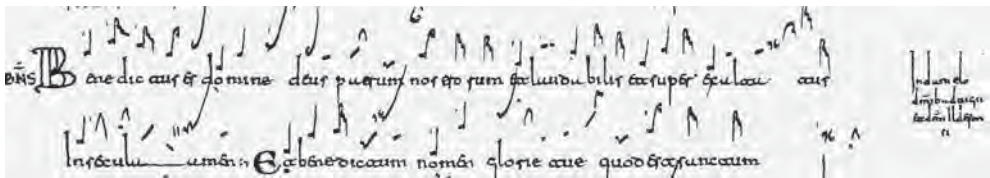 BNS Benedictus es domine deus patrum nostrorum et laudabilis et super exaltatus
In secula amen Et benedictum nomen glorie tue quod est sanctum